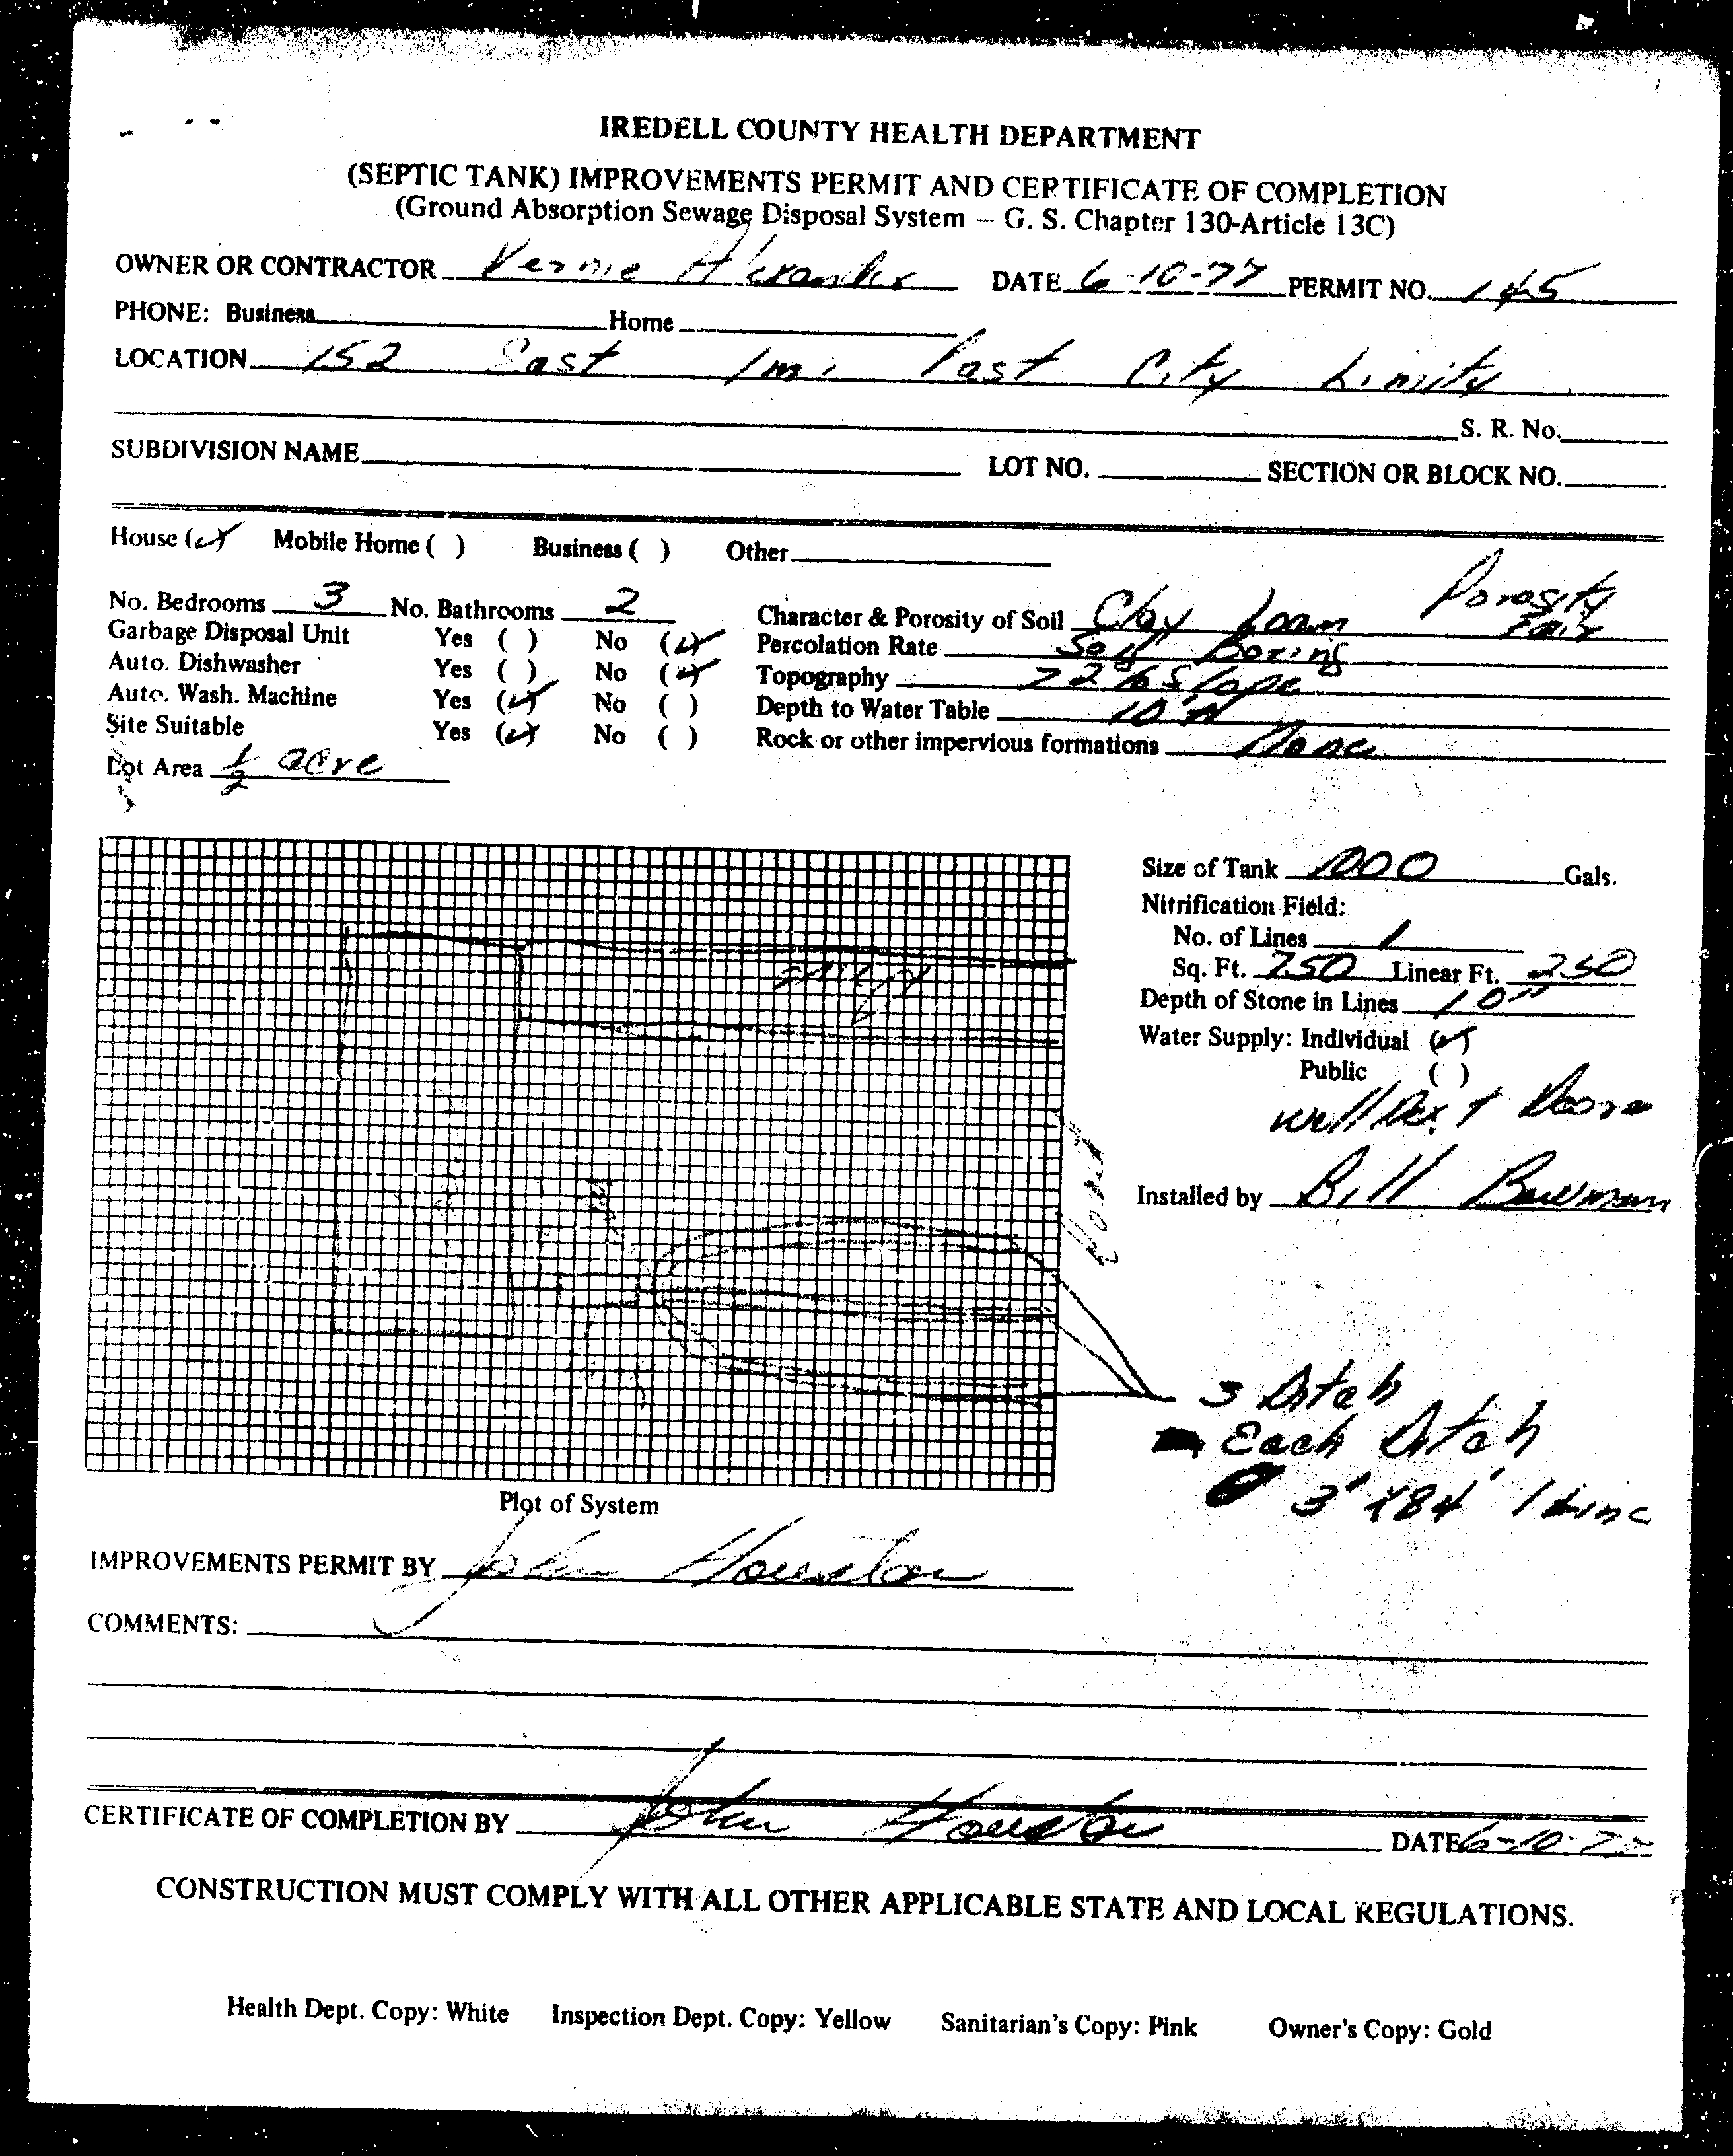 IREDELL COUNTY HEALTH DEPARTMENT
(SEPTIC TANK) IMPROVEMENTS PERMIT AND CERTIFICATE OF COMPLETION
(Ground Absorption Sewage Disposal System – G. S. Chapter 130-Article 13C)
OWNER OR CONTRACTOR Vernie Alexander DATE 6-10-77 PERMIT NO. 145
PHONE: Business Home
LOCATION 152 East 1 mi Past City Limits
S. R. No.
SUBDIVISION NAME LOT NO. SECTION OR BLOCK NO.
House (✓) Mobile Home ( ) Business ( ) Other
No. Bedrooms 3 No. Bathrooms 2
Garbage Disposal Unit Yes ( ) No (✓)
Auto. Dishwasher Yes ( ) No (✓)
Auto. Wash. Machine Yes (✓) No ( )
Site Suitable Yes (✓) No ( )
Lot Area 1/2 acre
Character & Porosity of Soil Clay Loam Porosity Fair
Percolation Rate Soil Boring
Topography >2% Slope
Depth to Water Table 10'
Rock or other impervious formations None
Size of Tank 1000 Gals.
Nitrification Field:
No. of Lines 1
Sq. Ft. 750 Linear Ft. 250
Depth of Stone in Lines 10"
Water Supply: Individual (✓)
Public ( )
well Next Door
Installed by Bill Bowman
Front
3 Ditch
Each Ditch
3' x 84' 1 Line
Plot of System
IMPROVEMENTS PERMIT BY John Houston
COMMENTS:
CERTIFICATE OF COMPLETION BY John Houston DATE 6-10-77
CONSTRUCTION MUST COMPLY WITH ALL OTHER APPLICABLE STATE AND LOCAL REGULATIONS.
Health Dept. Copy: White Inspection Dept. Copy: Yellow Sanitarian's Copy: Pink Owner's Copy: Gold